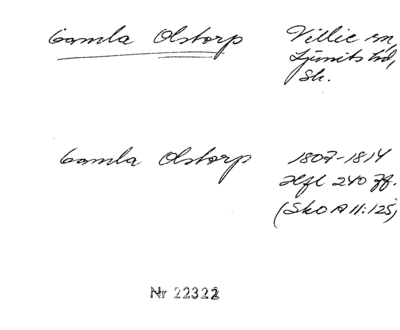 Gamla Olstorp
Villie sn,
Ljunits hd,
Sk.
Gamla Olstorp
1807-1814
Hfl 240 ff.
(SkO A II:125)
Nr 22322